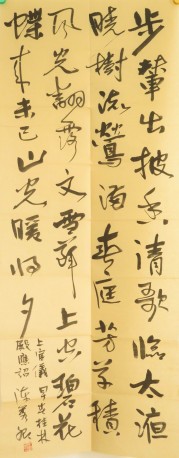 步輦出披香清歌臨太液
曉樹流鶯滿春庭芳草積
風光翻露文雪華上空碧花
蝶來未已山光暖將夕
上官儀早春桂林
殿應詔